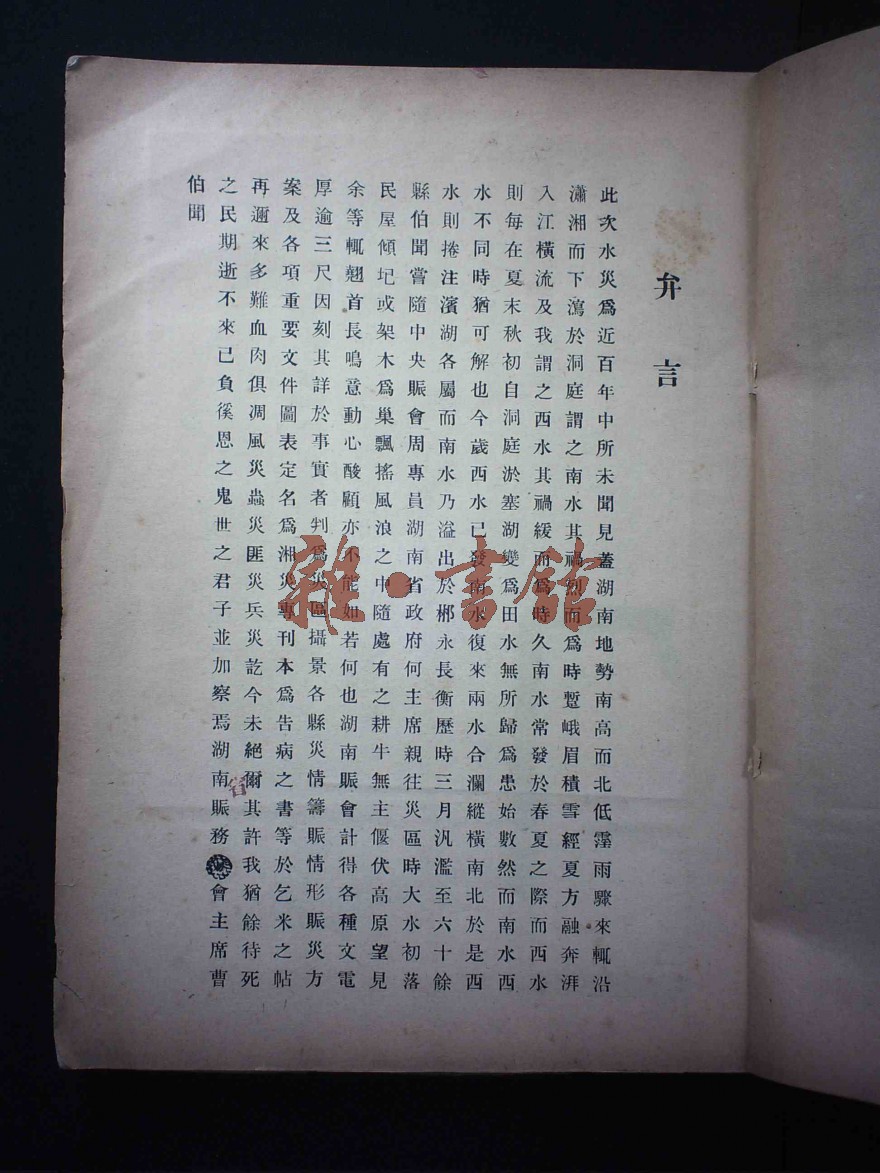 弁言
此次水災爲近百年中所未聞見蓋湖南地勢南高而北低霪雨驟來輒沿
瀟湘而下瀉於洞庭謂之南水其禍烈而爲時蹔峨眉積雪經夏方融奔湃
入江橫流及我謂之西水其禍緩而爲時久南水常發於春夏之際而西水
則每在夏末秋初自洞庭淤塞湖變爲田水無所歸爲患始數然而南水西
水不同時猶可解也今歲西水已發南水復來兩水合瀾縱橫南北於是西
水則捲注濱湖各屬而南水乃溢出於郴永長衡歷時三月汎濫至六十餘
縣伯聞嘗隨中央賑會周專員湖南省政府何主席親往災區時大水初落
民屋傾圮或架木爲巢飄搖風浪之中隨處有之耕牛無主偃伏高原望見
余等輒翹首長鳴意動心酸顧亦不能如若何也湖南賑會計得各種文電
厚逾三尺因刻其詳於事實者判爲災區攝景各縣災情籌賑情形賑災方
案及各項重要文件圖表定名爲湘災專刊本爲告病之書等於乞米之帖
再邇來多難血肉俱凋風災蟲災匪災兵災訖今未絕爾其許我猶餘待死
之民期逝不來已負徯恩之鬼世之君子並加察焉湖南省賑務會主席曹
伯聞
雜·書館